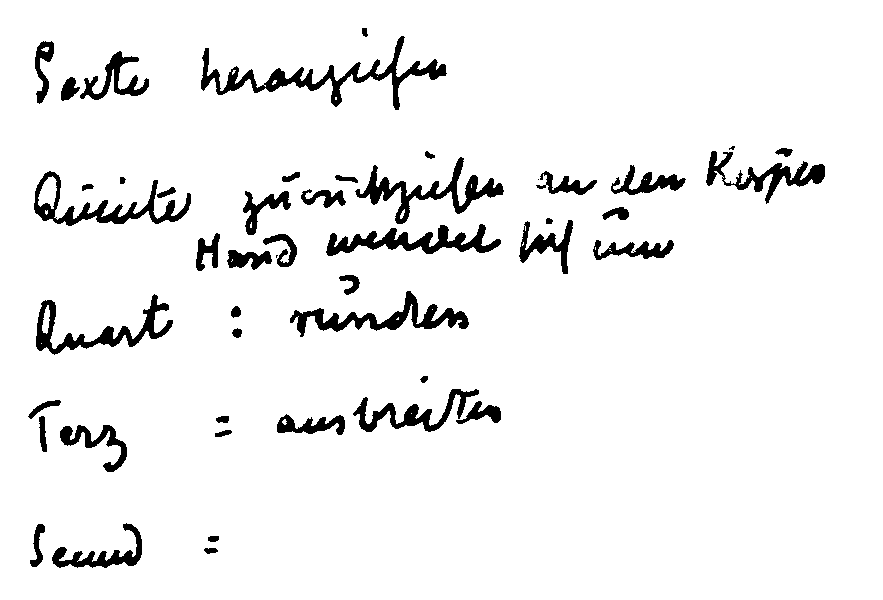 Sexte heranziehen
Quinte zurückziehen an den Körper
Hand wendet sich um
Quart : runden
Terz = ausbreiten
Secund =